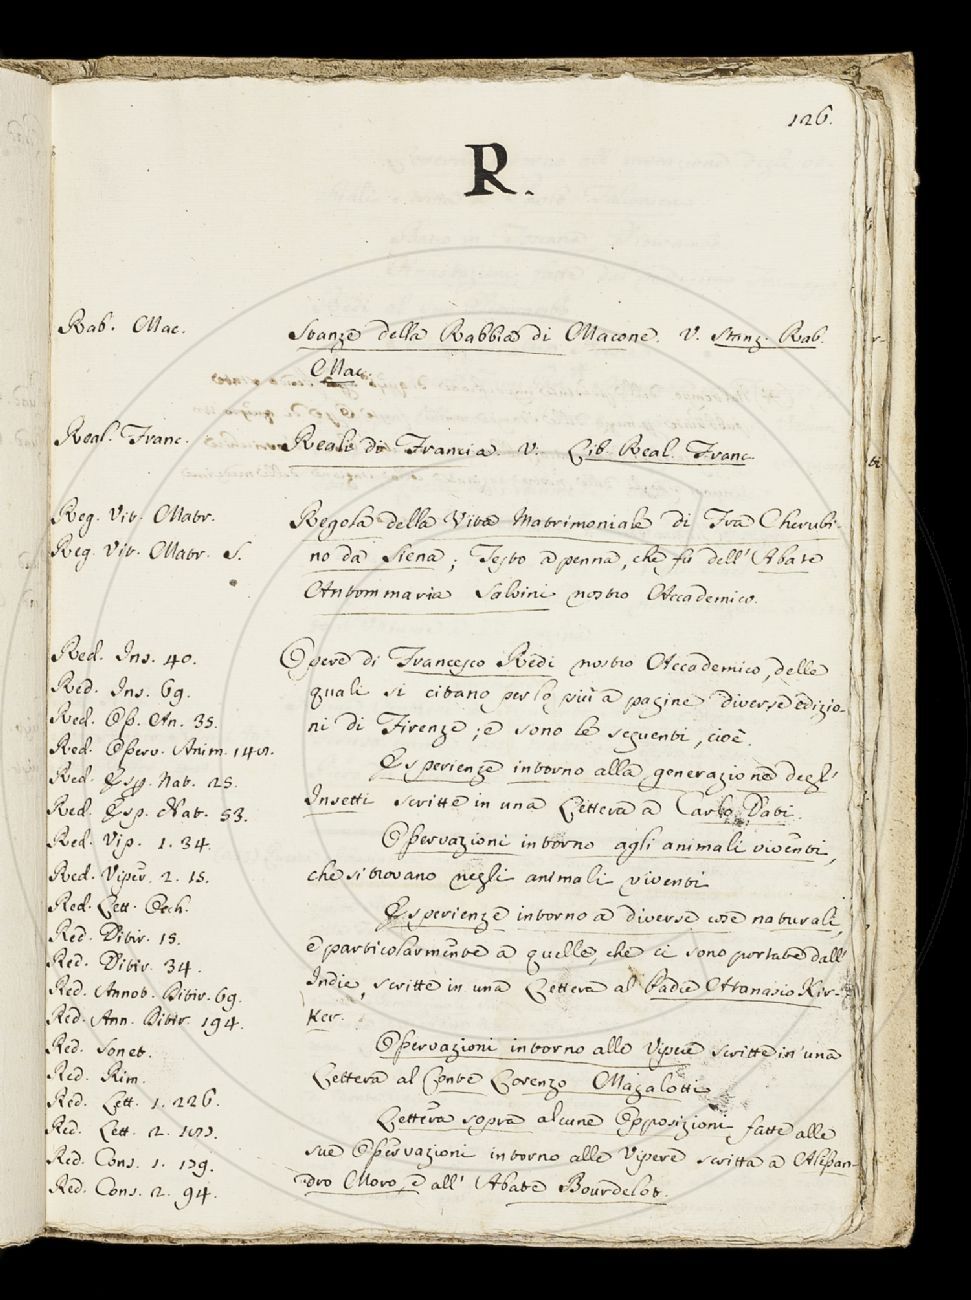 126.
R.
Rab. Mac.
Stanze della Rabbia di Macone. V. Stanz. Rab.
Mac.
Real. Franc.
Reali di Francia. V. Lib. Real. Franc.
Reg. Vit. Matr.
Reg. Vit. Matr. S.
Regola della Vita Matrimoniale di Fra Cherubi-
no da Siena; Testo a penna, che fu dell' Abate
Antommaria Salvini nostro Accademico.
Red. Ins. 40.
Red. Ins. 69.
Red. Oss. An. 35.
Red. Osserv. Anim.
Red. Esp. Nat. 25.
Red. Esp. Nat. 53.
Red. Vip. 1. 34.
Red. Viper. 2. 15.
Red. Lett. Occh.
Red. Ditir. 15.
Red. Ditir. 34.
Red. Annot. Ditir. 69.
Red. Ann. Ditir. 194.
Red. Sonet.
Red. Rim.
Red. Lett. 1. 226.
Red. Lett. 2.
Red. Cons. 1. 179.
Red. Cons. 2. 94.
Opere di Francesco Redi nostro Accademico, delle
quali si citano per lo più a pagine diverse edizio-
ni di Firenze; e sono le seguenti, cioè.
Esperienze intorno alla generazione degl'
Insetti scritte in una Lettera a Carlo Dati.
Osservazioni intorno agli animali viventi,
che si trovano negli animali viventi
Esperienze intorno a diverse cose naturali,
e particolarmente a quelle, che ci sono portate dall'
Indie, scritte in una Lettera al Padre Atanasio Kir-
ker.
Osservazioni intorno alle Vipere scritte in una
Lettera al Conte Lorenzo Magalotti
Lettera sopra alcune Opposizioni fatte alle
sue Osservazioni intorno alle Vipere scritta a Alessan-
dro Moro, e all' Abate Bourdelot.